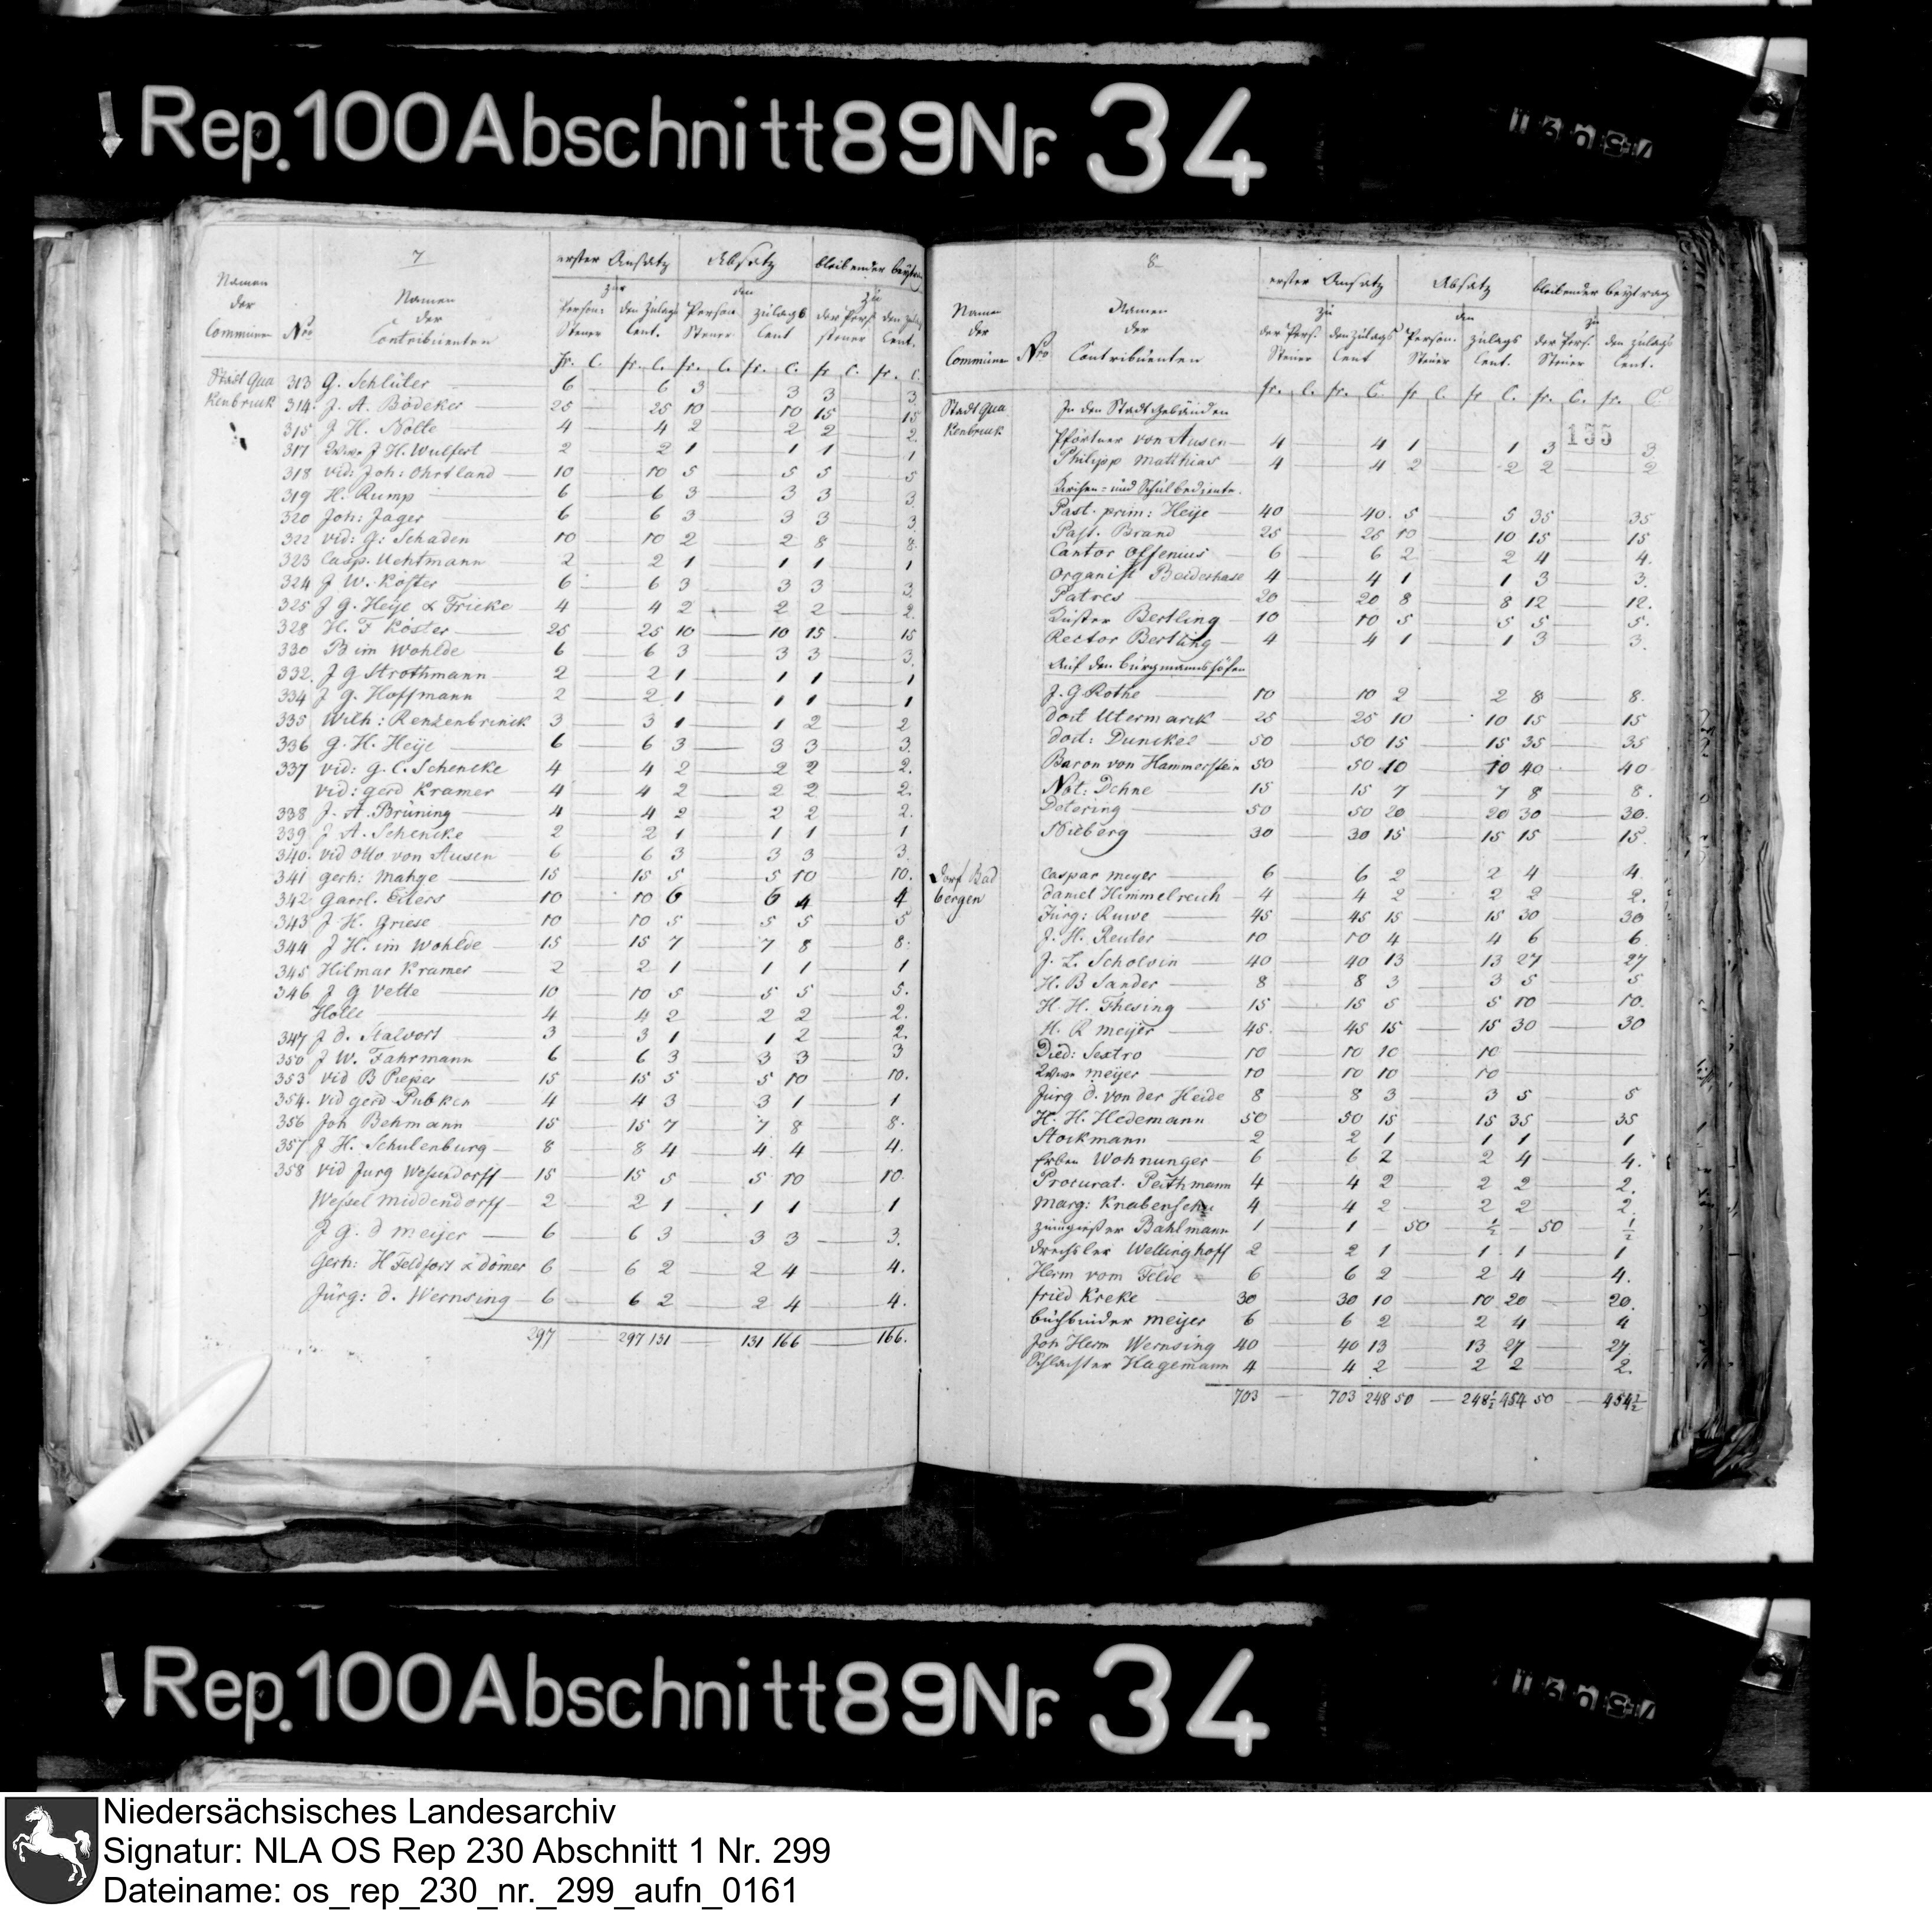 Rep. 100 Abschnitt 89 Nr. 34
7
erster Ansatz Absatz bleibender Beytrag
Namen der Communen Nro Namen der Contribuenten
zur Person: Steuer den Zulags Cent. den Person Steuer Zulags Cent zu der Pers. Steuer den Zulags Cent.
Fr. C. fr. C. fr. C. fr. C. fr. C. fr. C.
Stadt Qua 313 G. Schlüter 6 — 6 3 — 3 3 — 3
kenbruck 314. J. A. Bödeker 25 — 25 10 — 10 15 — 15
315 J H. Nolte 4 — 4 2 — 2 2 — 2.
317 Wwe J H. Wulfert 2 — 2 1 — 1 1 — 1
318 vid: Joh: Ohrtland 10 — 10 5 — 5 5 — 5
319 H. Rump 6 — 6 3 — 3 3 — 3.
320 Joh: Jager 6 — 6 3 — 3 3 — 3.
322 vid: G: Schaden 10 — 10 2 — 2 8 — 8.
323 Casp. Uehtmann 2 — 2 1 — 1 1 — 1
324 J W. Koster 6 — 6 3 — 3 3 — 3.
325 J G. Heye & Fricke 4 — 4 2 — 2 2 — 2.
328 H. F Köster 25 — 25 10 — 10 15 — 15
330 B im Wohlde 6 — 6 3 — 3 3 — 3.
332. J G Strothmann 2 — 2 1 — 1 1 — 1
334 J G. Hoffmann 2 — 2 1 — 1 1 — 1
335 Wilh: Renzenbrinck 3 — 3 1 — 1 2 — 2
336 G. H. Heye 6 — 6 3 — 3 3 — 3.
337 vid: G. C. Schencke 4 — 4 2 — 2 2 — 2.
vid: Gerd Kramer 4 — 4 2 — 2 2 — 2.
338 J. A. Brüning 4 — 4 2 — 2 2 — 2.
339 J A. Schencke 2 — 2 1 — 1 1 — 1
340. vid Otto von Ausen 6 — 6 3 — 3 3 — 3.
341 Gerh: Mahge 15 — 15 5 — 5 10 — 10.
342 Garrl. Eilers 10 — 10 6 — 6 4 — 4
343 J H. Griese 10 — 10 5 — 5 5 — 5
344 J H. im Wohlde 15 — 15 7 — 7 8 — 8.
345 Hilmar Kramer 2 — 2 1 — 1 1 — 1
346 J G Vette 10 — 10 5 — 5 5 — 5.
Holle 4 — 4 2 — 2 2 — 2.
347 J D. Stalvort 3 — 3 1 — 1 2 — 2.
350 J W. Fahrmann 6 — 6 3 — 3 3 — 3
353 vid B Pieper 15 — 15 5 — 5 10 — 10.
354. vid Gerd Pubken 4 — 4 3 — 3 1 — 1
356 Joh Behmann 15 — 15 7 — 7 8 — 8.
357 J H. Schulenburg 8 — 8 4 — 4 4 — 4.
358 vid Jurg Wessendorff 15 — 15 5 — 5 10 — 10.
Wessel Middendorff 2 — 2 1 — 1 1 — 1
J G. D Meijer 6 — 6 3 — 3 3 — 3.
Gerh: H Feldfort & Dömer 6 — 6 2 — 2 4 — 4.
Jürg: D. Wernsing 6 — 6 2 — 2 4 — 4.
297 — 297 131 — 131 166 — 166.
8
erster Ansatz Absatz bleibender Beytrag
Namen der Communen Nro Namen der Contribuenten
zu der Pers. Steuer den Zulags Cent den Person. Steuer Zulags Cent. zu der Pers. Steuer den Zulags Cent.
fr. C. fr. C. fr C. fr C. fr. C. fr. C.
Stadt Qua In den Stadt Gebäuden
kenbruck
155
Pförtner von Ausen 4 — 4 1 — 1 3 — 3
Philipp Matthias 4 — 4 2 — 2 2 — 2
Kirchen= und Schulbediente.
Past. prim: Heye 40 — 40. 5 — 5 35 — 35
Past. Brand 25 — 25 10 — 10 15 — 15
Cantor Offenius 6 — 6 2 — 2 4 — 4.
Organist 4 — 4 1 — 1 3 — 3.
Patres 20 — 20 8 — 8 12 — 12.
Küster Bertling 10 — 10 5 — 5 5 — 5.
Rector Bertling 4 — 4 1 — 1 3 — 3.
Auf den Burgmannshöfen
J. G Rothe 10 — 10 2 — 2 8 — 8.
Doct Utermarck 25 — 25 10 — 10 15 — 15
Doct: Dunckel 50 — 50 15 — 15 35 — 35
Baron von Hammerstein 50 — 50 10 — 10 40 — 40
Not: Dehne 15 — 15 7 — 7 8 — 8.
Detering 50 — 50 20 — 20 30 — 30.
Nieberg 30 — 30 15 — 15 15 — 15.
Dorf Bad Caspar Meyer 6 — 6 2 — 2 4 — 4
bergen Daniel Himmelreich 4 — 4 2 — 2 2 — 2.
Jürg: Ruwe 45 — 45 15 — 15 30 — 30
J. H. Reuter 10 — 10 4 — 4 6 — 6
J. L. Scholvin 40 — 40 13 — 13 27 — 27
H. B Sander 8 — 8 3 — 3 5 — 5
H. H. Thesing 15 — 15 5 — 5 10 — 10.
H. R Meijer 45. — 45 15 — 15 30 — 30
Died: Sextro 10 — 10 10 — 10 —
Wwe Meijer 10 — 10 10 — 10 —
Jürg D. von der Heide 8 — 8 3 — 3 5 — 5
H. H. Hedemann 50 — 50 15 — 15 35 — 35
Stockmann 2 — 2 1 — 1 1 — 1
Erben Wohnunger 6 — 6 2 — 2 4 — 4.
Procurat. Peithmann 4 — 4 2 — 2 2 — 2.
Marg: Knabenschu 4 — 4 2 — 2 2 — 2
Zinngießer Bahlmann 1 — 1 — 50 — ½ — 50 — ½
Drechsler Wellinghoff 2 — 2 1 — 1 1 — 1
Herm vom Felde 6 — 6 2 — 2 4 — 4.
Fried Kreke 30 — 30 10 — 10 20 — 20.
Buchbinder Meijer 6 — 6 2 — 2 4 — 4
Joh Herm Wernsing 40 — 40 13 — 13 27 — 27.
Schlachter Hagemann 4 — 4 2 — 2 2 — 2.
703 — 703 248 50 — 248½ 454 50 — 454½
Rep. 100 Abschnitt 89 Nr. 34
Niedersächsisches Landesarchiv
Signatur: NLA OS Rep 230 Abschnitt 1 Nr. 299
Dateiname: os_rep_230_nr._299_aufn_0161